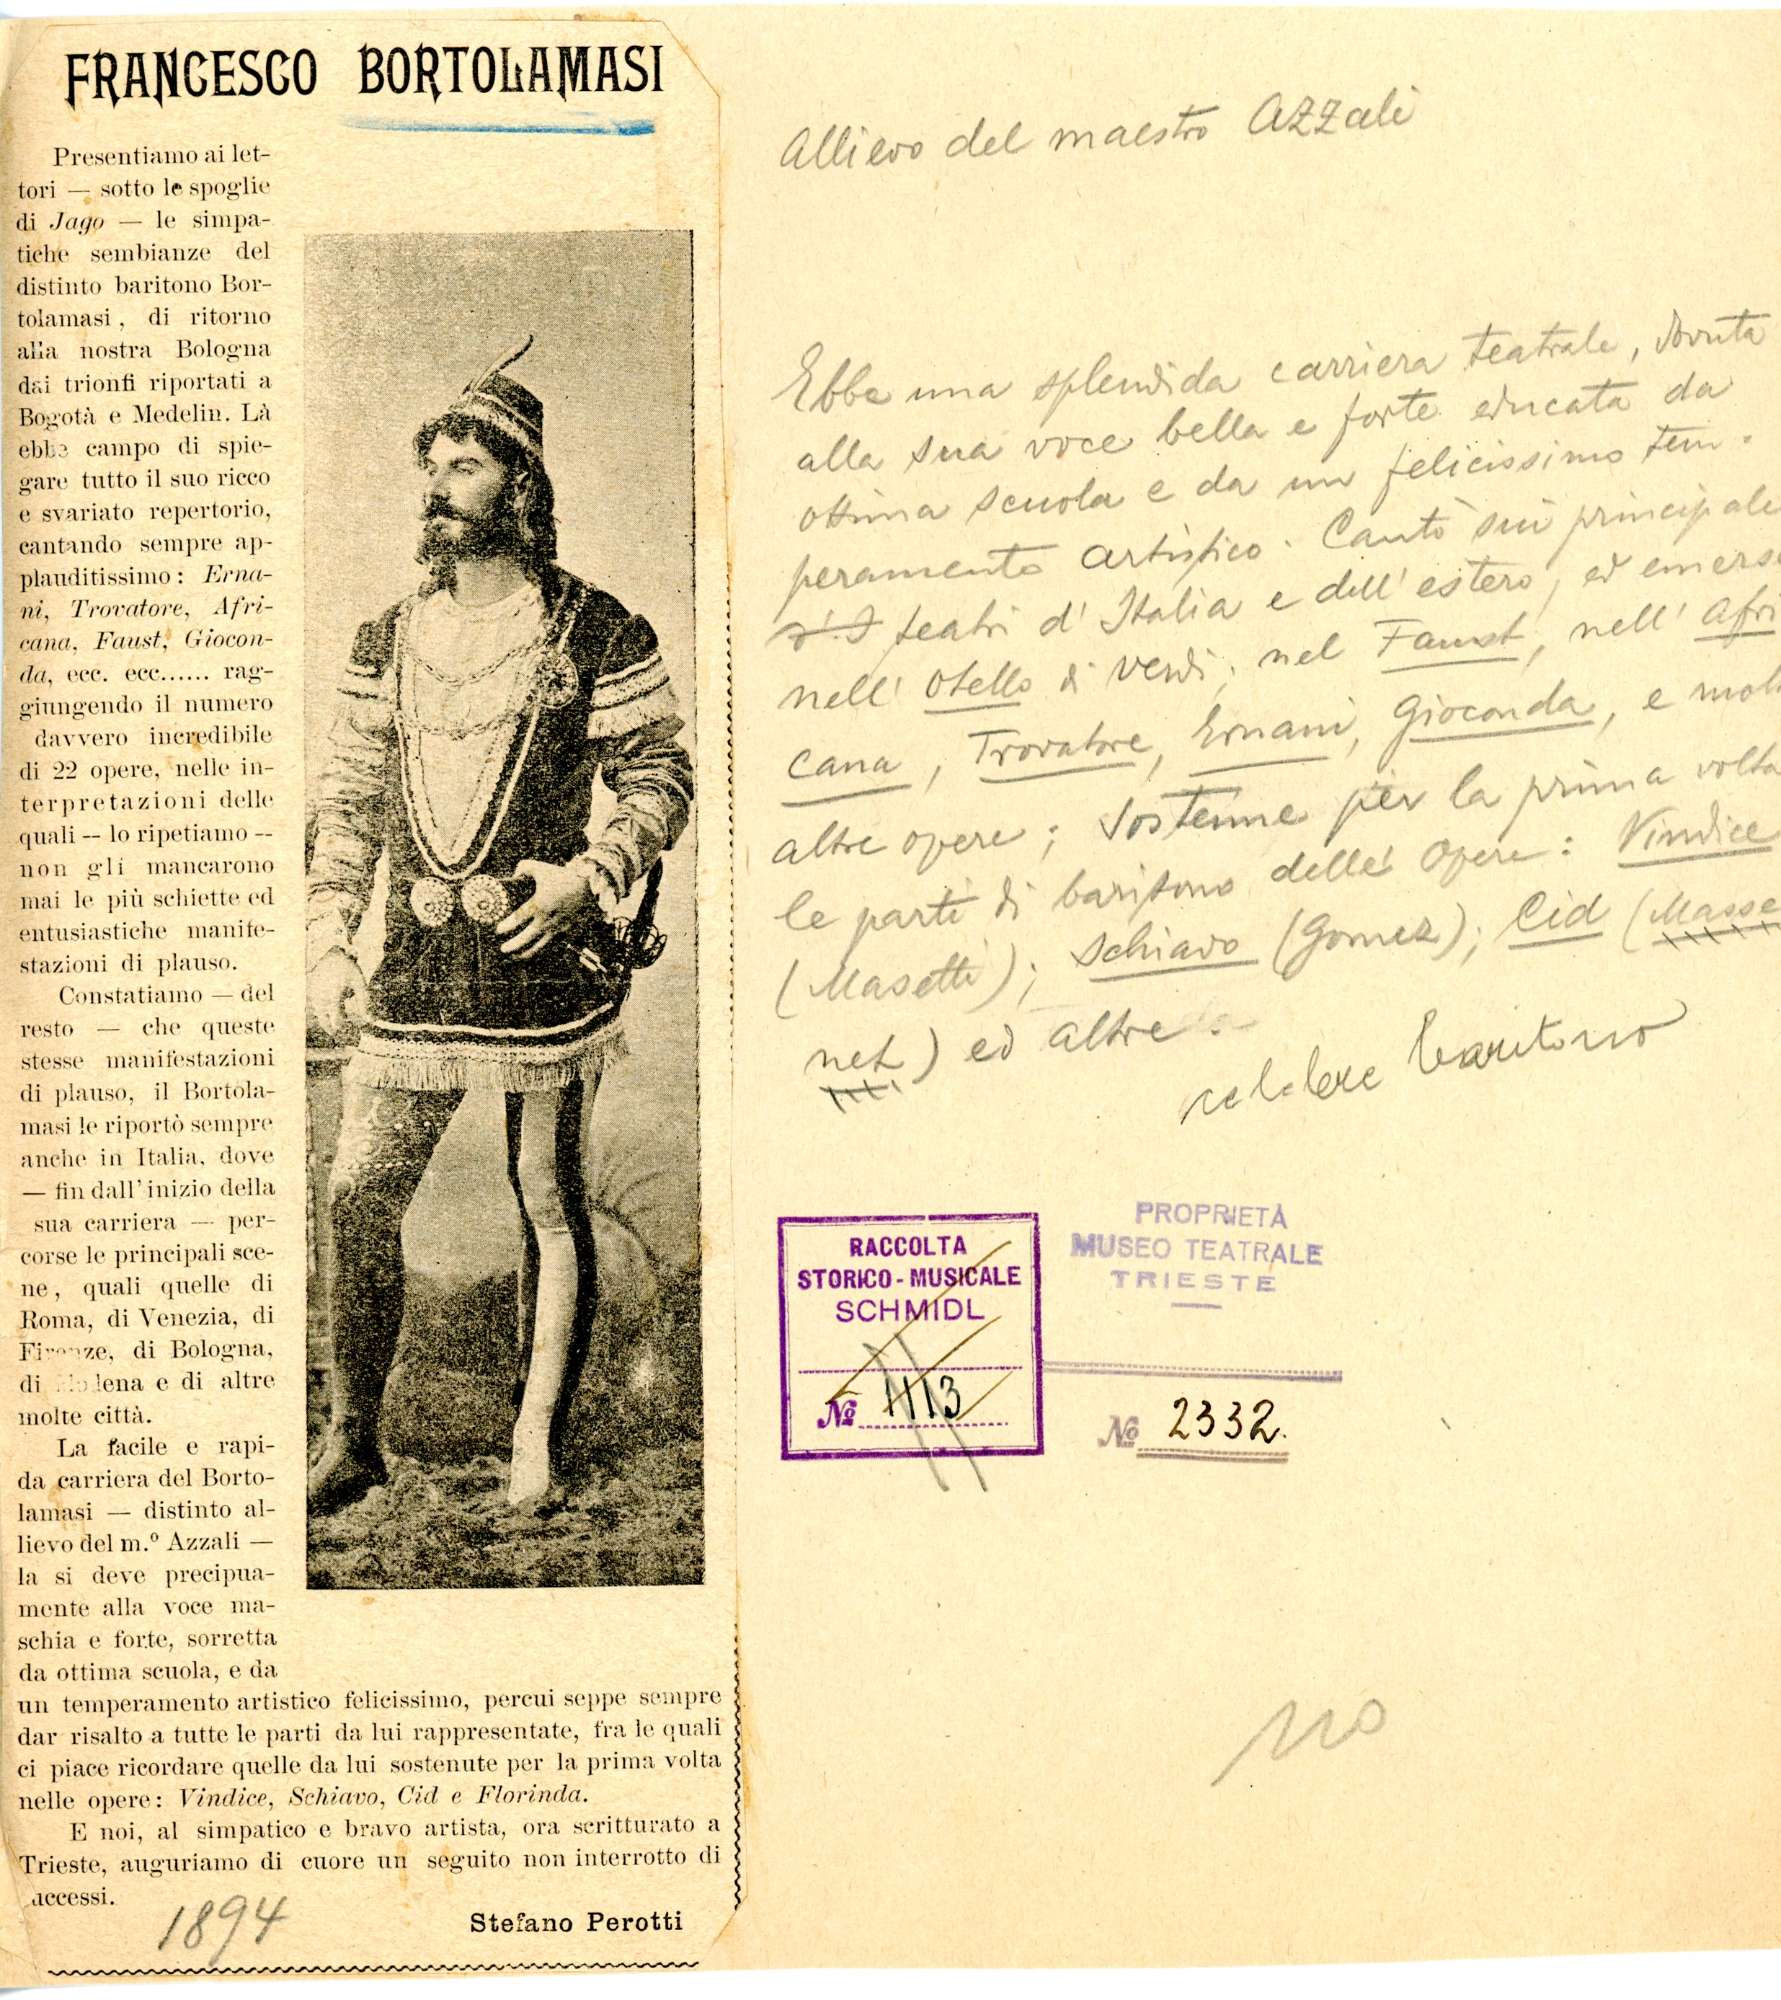 FRANCESCO BORTOLAMASI
Presentiamo ai let-
tori — sotto le spoglie
di Jago — le simpa-
tiche sembianze del
distinto baritono Bor-
tolamasi, di ritorno
alla nostra Bologna
dai trionfi riportati a
Bogotà e Medelin. Là
ebbe campo di spie-
gare tutto il suo ricco
e svariato repertorio,
cantando sempre ap-
plauditissimo: Erna-
ni, Trovatore, Afri-
cana, Faust, Giocon-
da, ecc. ecc...... rag-
giungendo il numero
davvero incredibile
di 22 opere, nelle in-
terpretazioni delle
quali -- lo ripetiamo --
non gli mancarono
mai le più schiette ed
entusiastiche manife-
stazioni di plauso.
Constatiamo — del
resto — che queste
stesse manifestazioni
di plauso, il Bortola-
masi le riportò sempre
anche in Italia, dove
— fin dall'inizio della
sua carriera — per-
corse le principali sce-
ne, quali quelle di
Roma, di Venezia, di
Firenze, di Bologna,
di Modena e di altre
molte città.
La facile e rapi-
da carriera del Borto-
lamasi — distinto al-
lievo del m.º Azzali —
la si deve precipua-
mente alla voce ma-
schia e forte, sorretta
da ottima scuola, e da
un temperamento artistico felicissimo, percui seppe sempre
dar risalto a tutte le parti da lui rappresentate, fra le quali
ci piace ricordare quelle da lui sostenute per la prima volta
nelle opere: Vindice, Schiavo, Cid e Florinda.
E noi, al simpatico e bravo artista, ora scritturato a
Trieste, auguriamo di cuore un seguito non interrotto di
accessi.
Stefano Perotti
1894
Allievo del maestro Azzali
Ebbe una splendida carriera teatrale, dovuta
alla sua voce bella e forte educata da
ottima scuola e da un felicissimo tem-
peramento artistico. Cantò sui principali
teatri d'Italia e dell'estero, ed emerse
nell'Otello di Verdi, nel Faust, nell'Afri
cana, Trovatore, Ernani, Gioconda, e molte
altre opere; sostenne per la prima volta
le parti di baritono delle opere: Vindice
(Masetti); Schiavo (Gomez); Cid (Masse
net) ed altre.
celebre baritono
RACCOLTA
STORICO-MUSICALE
SCHMIDL
No 1113
PROPRIETÀ
MUSEO TEATRALE
TRIESTE
No 2332.
no